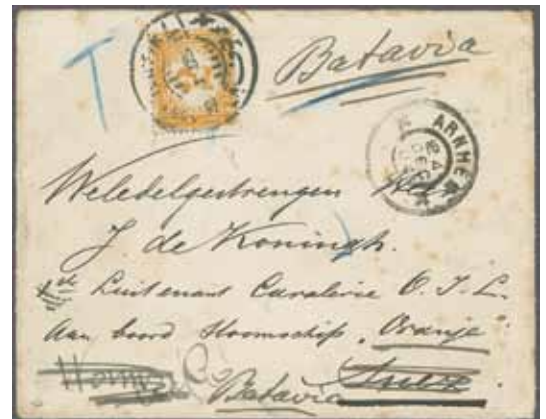 T
Batavia
ARNHEM
Weledelgestrengen Heer
J de Koningh.
1ste Luitenant Cavalerie O. I. L.
Aan boord Stoomschip "Oranje"
Batavia Suez